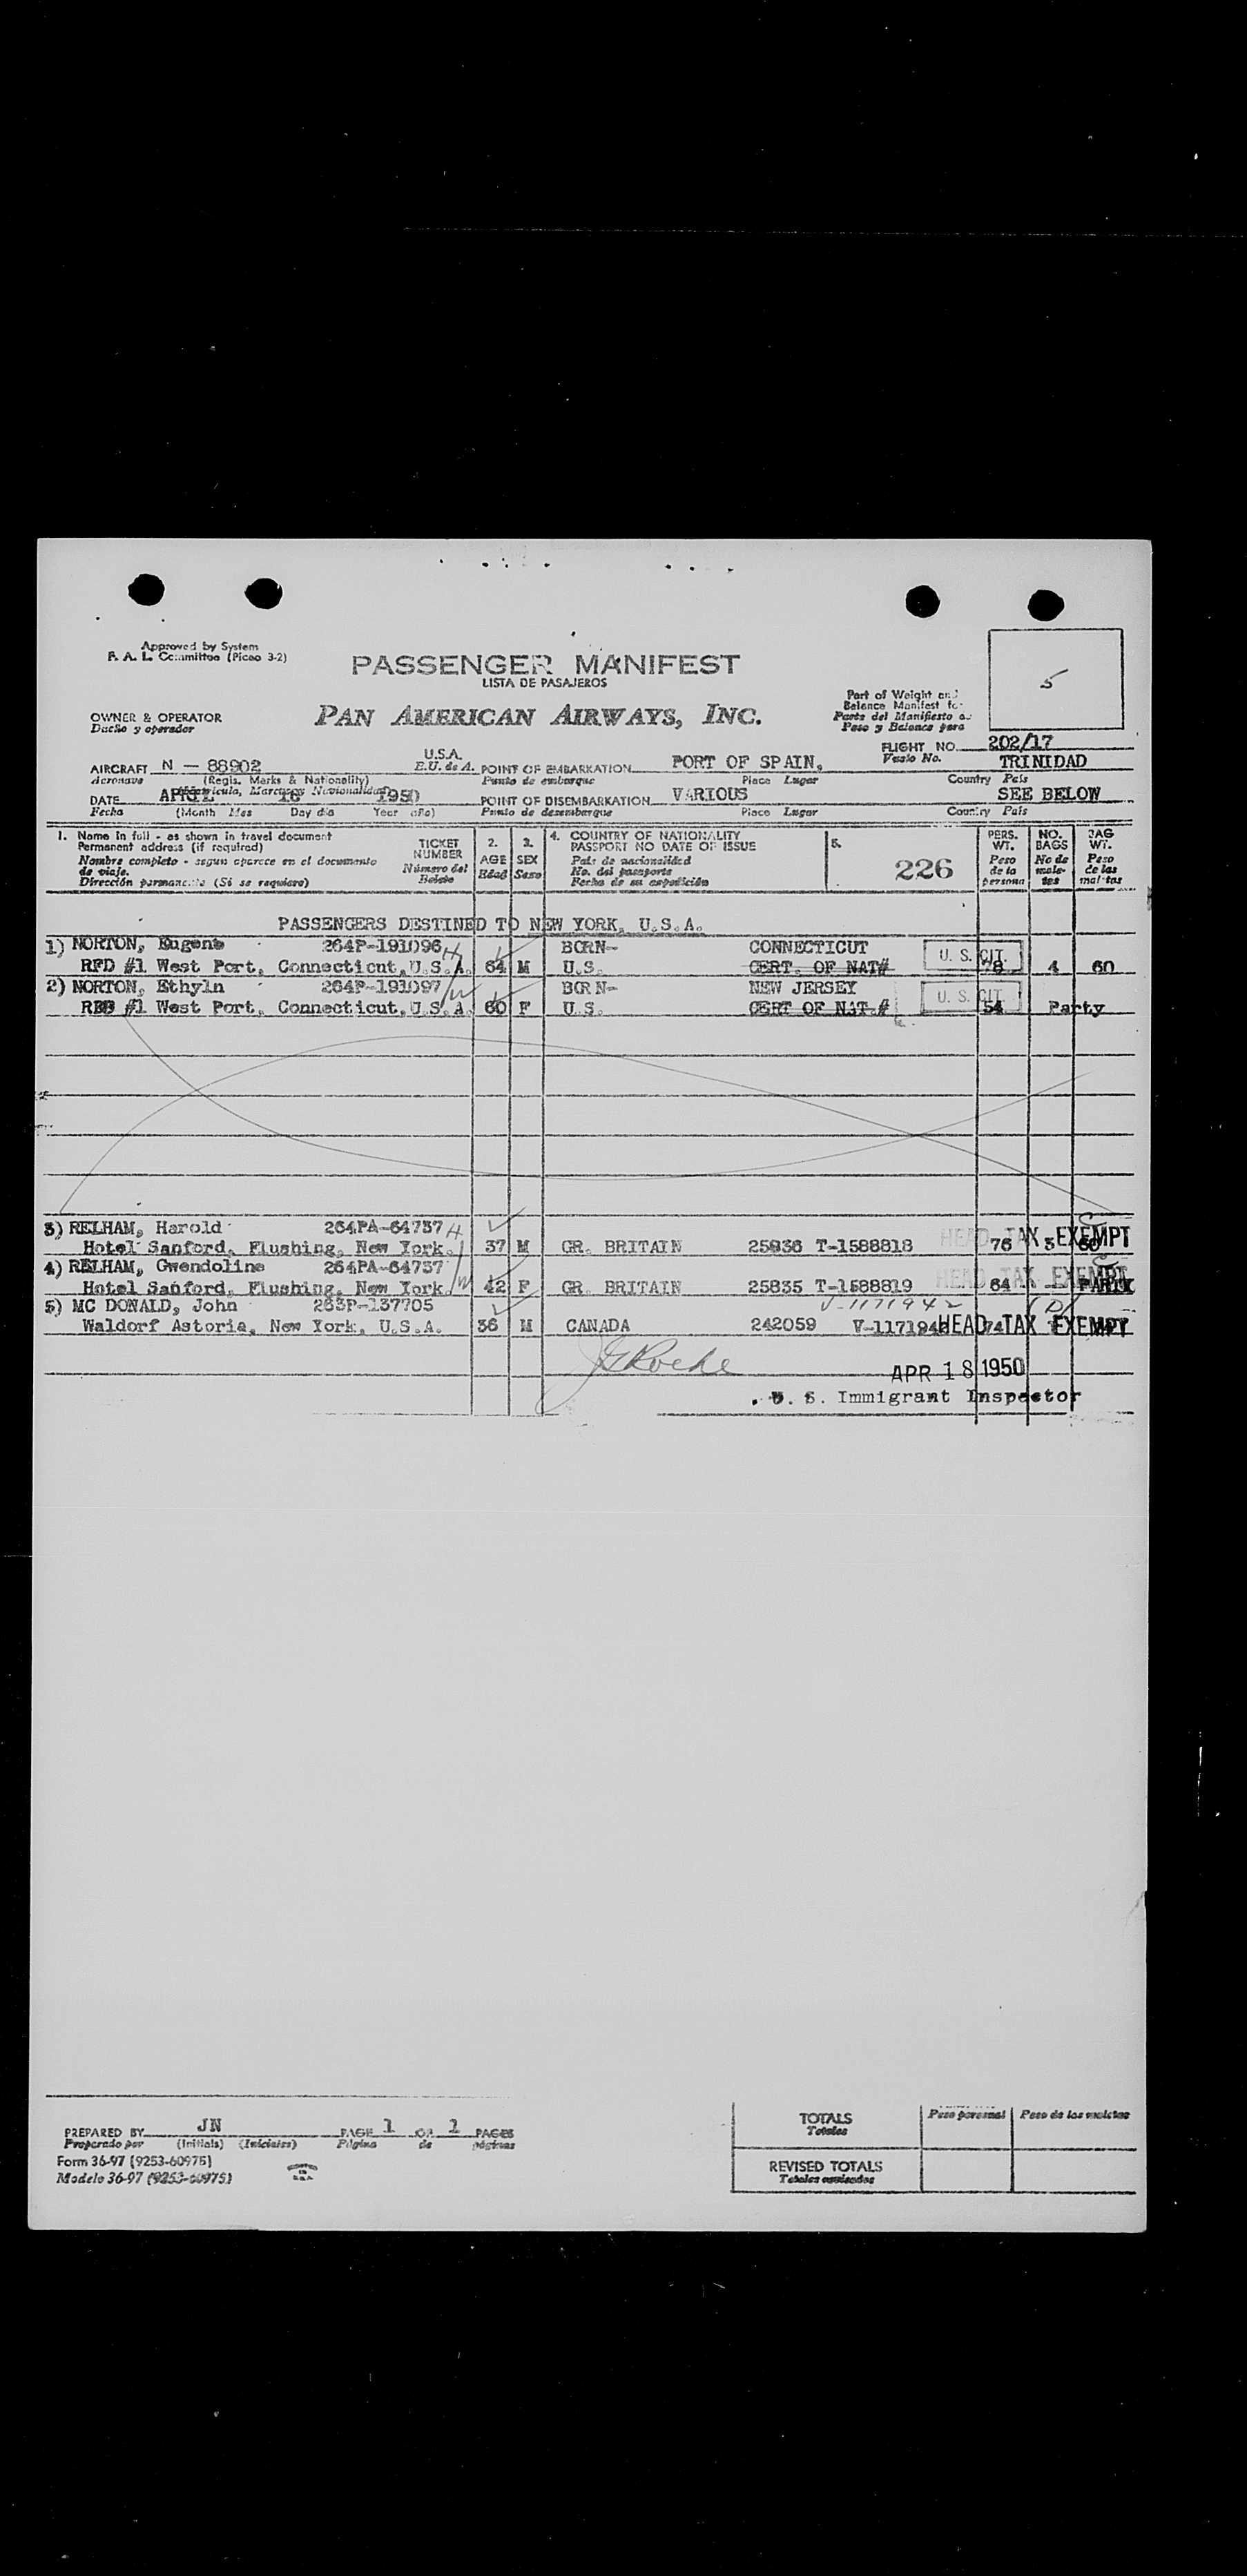 Approved by System
F. A. L. Committee (Picao 3-2)
PASSENGER MANIFEST
LISTA DE PASAJEROS
5
OWNER & OPERATOR
Dueño y operador
PAN AMERICAN AIRWAYS, INC.
Part of Weight and
Balance Manifest for
Parte del Manifiesto de
Peso y Balance para
FLIGHT NO. 202/17
Vuelo No.
AIRCRAFT N - 88902 U.S.A. POINT OF EMBARKATION PORT OF SPAIN, TRINIDAD
Aeronave (Regis. Marks & Nationality) E.U. de A. Punto de embarque Place Lugar Country País
(Matrícula, Marcas y Nacionalidad)
DATE APRIL 1950 POINT OF DISEMBARKATION VARIOUS SEE BELOW
Fecha (Month Mes Day día Year año) Punto de desembarque Place Lugar Country País
1. Name in full - as shown in travel document
Permanent address (if required)
Nombre completo - segun aparece en el documento
de viaje.
Dirección permanente (Si se requiere)
TICKET
NUMBER
Número del
Boleto
2.
AGE
Edad
3.
SEX
Sexo
4. COUNTRY OF NATIONALITY
PASSPORT NO DATE OF ISSUE
País de nacionalidad
No. del pasaporte
Fecha de su expedición
5.
226
PERS.
WT.
Peso
de la
persona
NO.
BAGS
No de
male-
tas
BAG
WT.
Peso
de las
maletas
PASSENGERS DESTINED TO NEW YORK, U.S.A.
1) NORTON, Eugene 264P-191096 H BORN- CONNECTICUT U. S. CIT.
RFD #1 West Port, Connecticut, U.S.A. 64 M U.S. CERT. OF NAT# 78 4 60
2) NORTON, Ethyln 264P-191097 W BORN- NEW JERSEY U. S. CIT.
#1 West Port, Connecticut, U.S.A. 60 F U.S. CERT OF NAT.# 54 Party
3) RELHAM, Harold 264PA-64737 H
Hotel Sanford, Flushing, New York. 37 M GR. BRITAIN 25936 T-1588818 HEAD TAX EXEMPT 76 3 60
4) RELHAM, Gwendoline 264PA-64737 W
Hotel Sanford, Flushing, New York. 42 F GR. BRITAIN 25835 T-1588819 HEAD TAX EXEMPT 64 PARTY
5) MC DONALD, John 263P-137705 V-1171942 (D)
Waldorf Astoria, New York, U.S.A. 36 M CANADA 242059 HEAD TAX EXEMPT 74
APR 18 1950
U. S. Immigrant Inspector
PREPARED BY JN PAGE 1 OF 1 PAGES
Preparado por (Initials) (Iniciales) Página de páginas
Form 36-97 (9253-60975)
Modelo 36-97 (9253-60975)
TOTALS
Totales
Peso personal
Peso de las maletas
REVISED TOTALS
Totales revisados